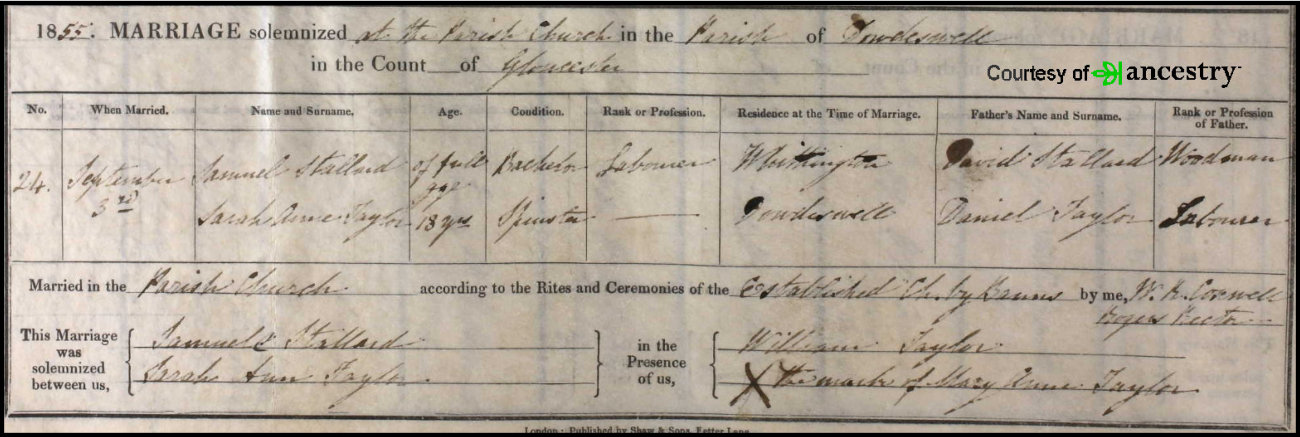 1855. MARRIAGE solemnized at the Parish Church in the Parish of Dowdeswell
in the Count of Gloucester
Courtesy of ancestry
No. When Married. Name and Surname. Age. Condition. Rank or Profession. Residence at the Time of Marriage. Father's Name and Surname. Rank or Profession of Father.
24. September 3rd Samuel Stallard of full age Bachelor Labourer Whittington David Stallard Woodman
Sarah Anne Taylor 18 yrs Spinster Dowdeswell Daniel Taylor Labourer
Married in the Parish Church according to the Rites and Ceremonies of the Established Ch. by Banns by me, W. R. Coxwell
Rogers Rector
This Marriage was solemnized between us, Samuel Stallard in the Presence of us, William Taylor
Sarah Ann Taylor X the mark of Mary Anne Taylor
London: Published by Shaw & Sons, Fetter Lane